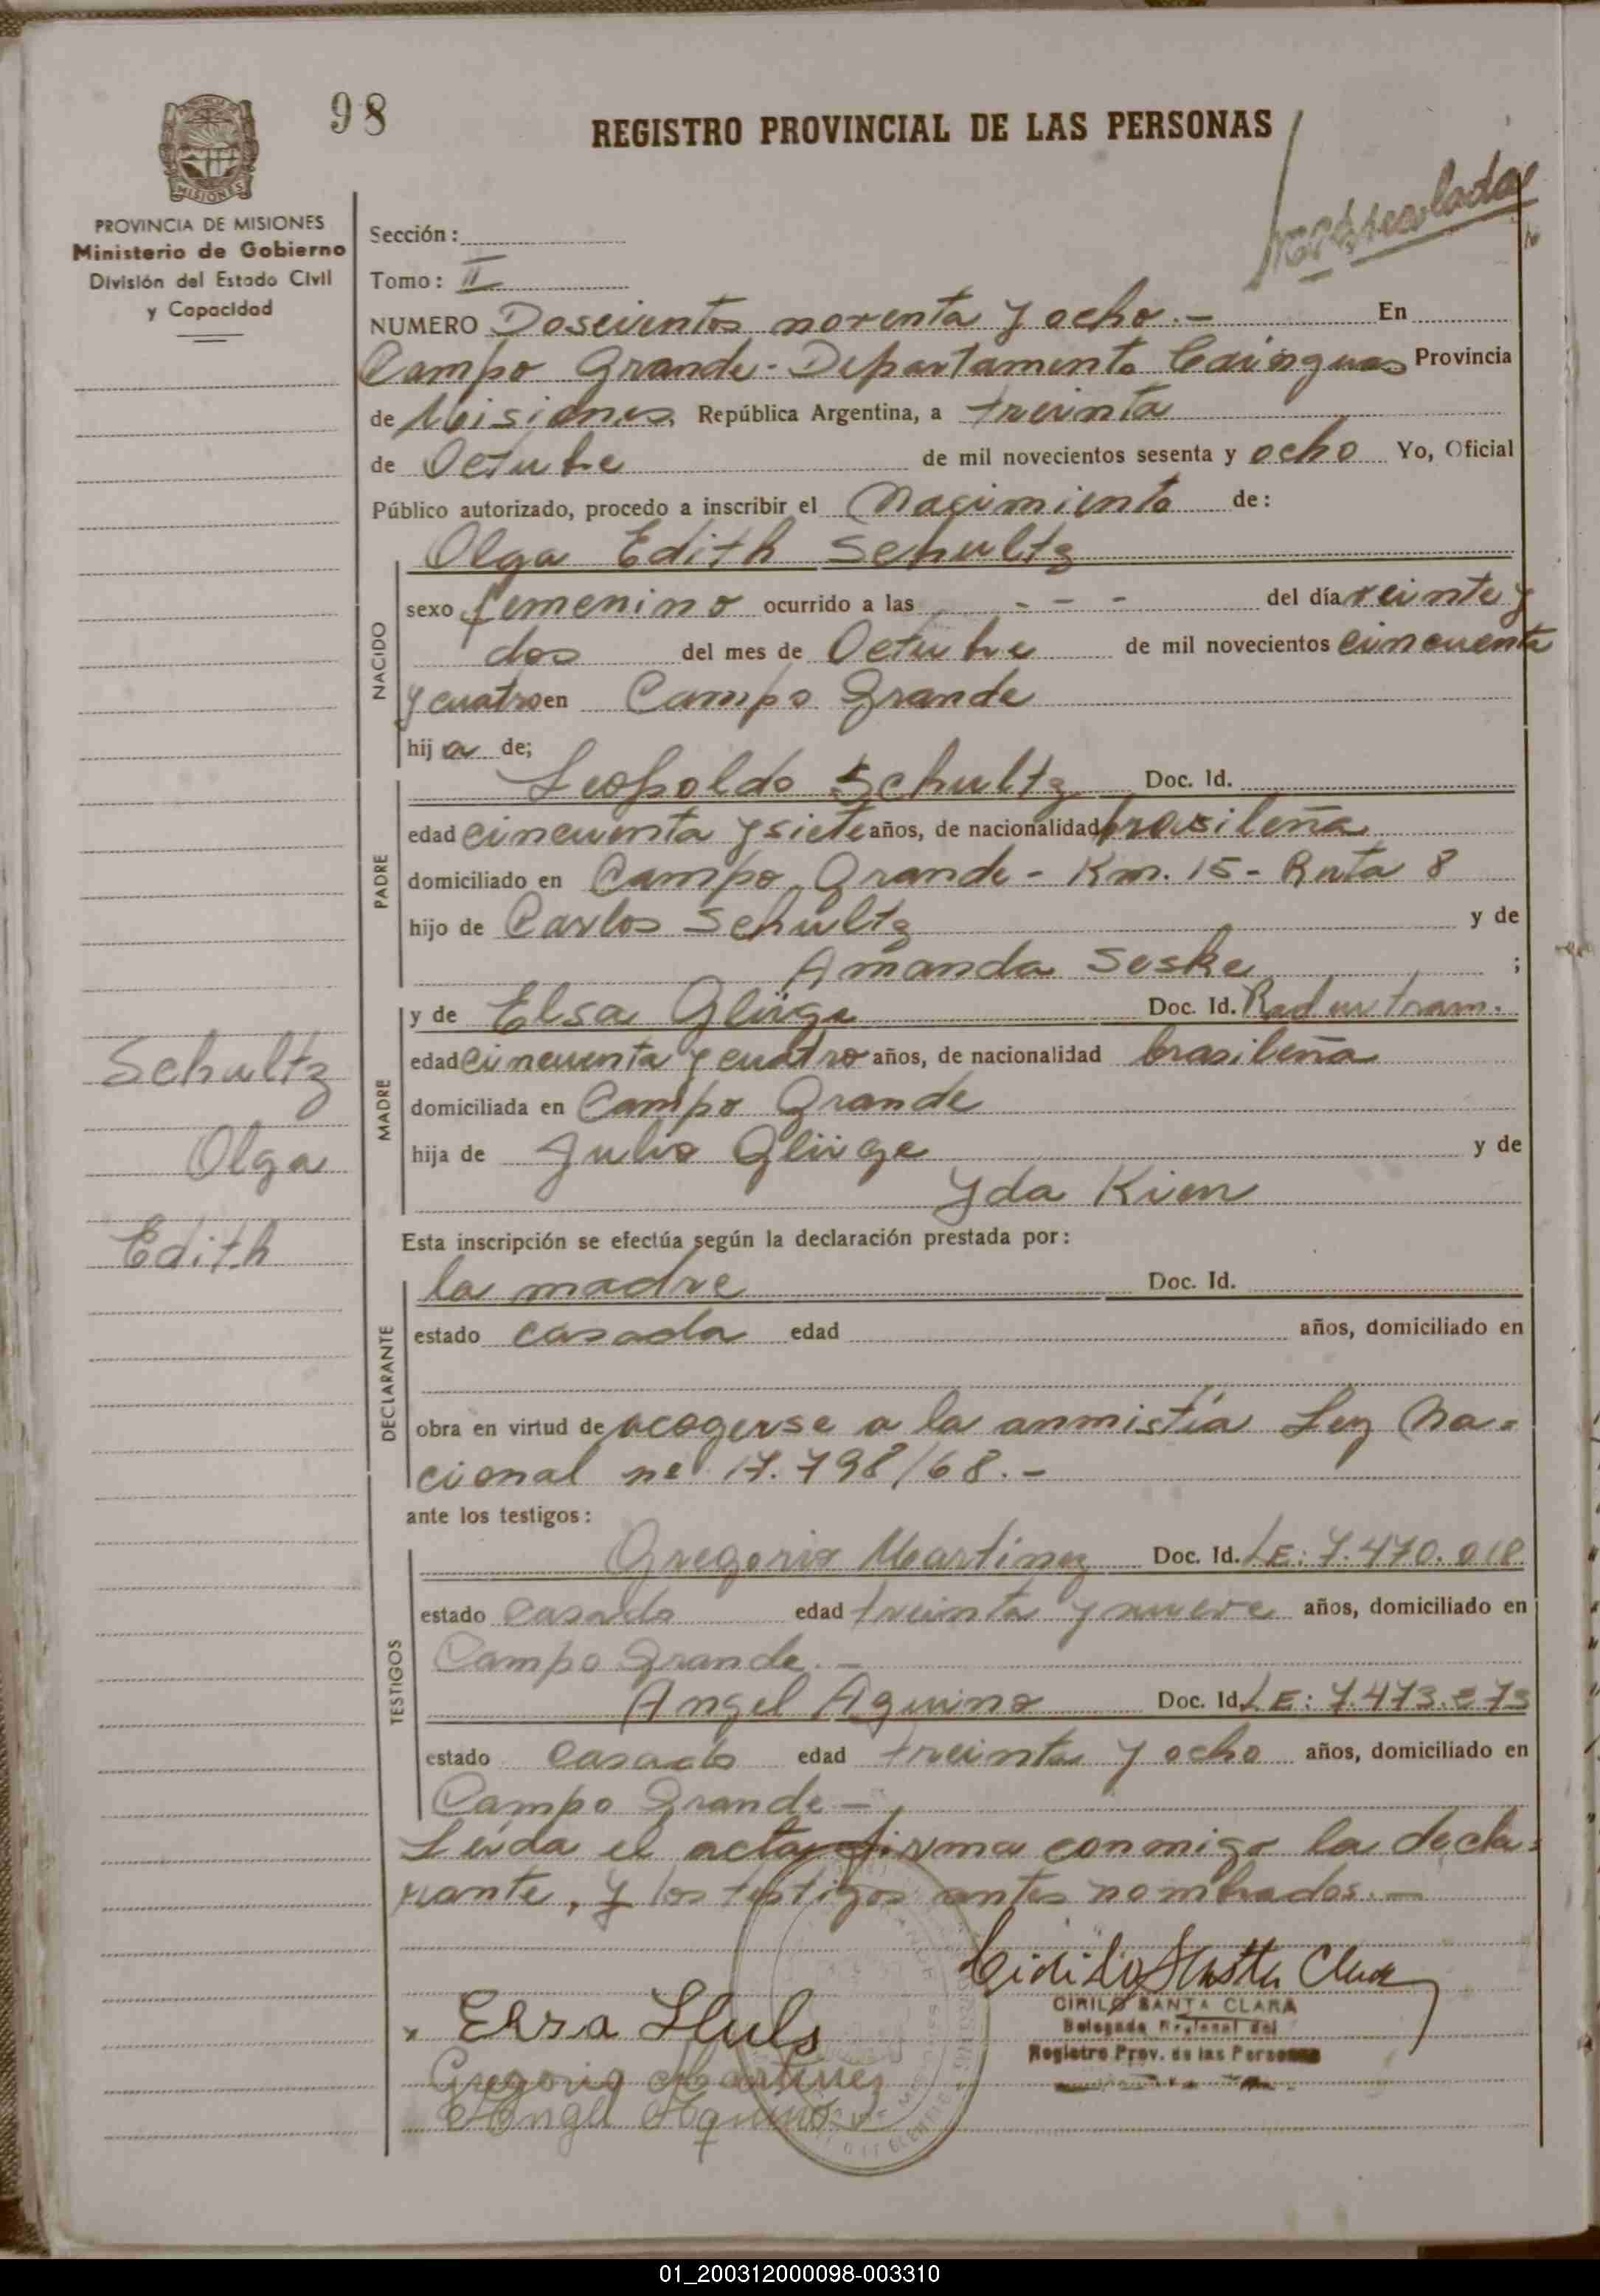 98
REGISTRO PROVINCIAL DE LAS PERSONAS
MISIONES
PROVINCIA DE MISIONES
Ministerio de Gobierno
División del Estado Civil
y Capacidad
Sección:
Tomo: II
NUMERO Doscientos noventa y ocho.- En
Campo Grande - Departamento Cainguas Provincia
de Misiones, República Argentina, a treinta
de Octubre de mil novecientos sesenta y ocho Yo, Oficial
Público autorizado, procedo a inscribir el Nacimiento de:
Olga Edith Schultz
NACIDO
sexo femenino ocurrido a las - - - del día veinte y
dos del mes de Octubre de mil novecientos cincuenta
y cuatro en Campo Grande
hija de;
PADRE
Leopoldo Schultz Doc. Id.
edad cincuenta y siete años, de nacionalidad brasileña
domiciliado en Campo Grande - Km. 15 - Ruta 8
hijo de Carlos Schultz y de
Amanda Seske ;
MADRE
y de Elsa Glüge Doc. Id. Rad en tram.
edad cincuenta y cuatro años, de nacionalidad brasileña
domiciliada en Campo Grande
hija de Julio Glüge y de
Yda Kien
Schultz
Olga
Edith
Esta inscripción se efectúa según la declaración prestada por:
DECLARANTE
la madre Doc. Id.
estado casada edad años, domiciliado en
obra en virtud de acogerse a la anmistía Ley Na=
cional nº 17.798/68.-
ante los testigos:
TESTIGOS
Gregorio Martinez Doc. Id. LE: 7.470.018
estado casado edad treinta y nueve años, domiciliado en
Campo Grande.-
Angel Aquino Doc. Id. LE: 7.473.273
estado casado edad treinta y ocho años, domiciliado en
Campo Grande-
Leida el acta firma conmigo la decla=
rante, y los testigos antes nombrados.-
Cirilo Santa Clara
CIRILO SANTA CLARA
Delegado Regional del
Registro Prov. de las Personas
x Elsa
Gregorio Martinez
Angel Aquino
01_200312000098-003310